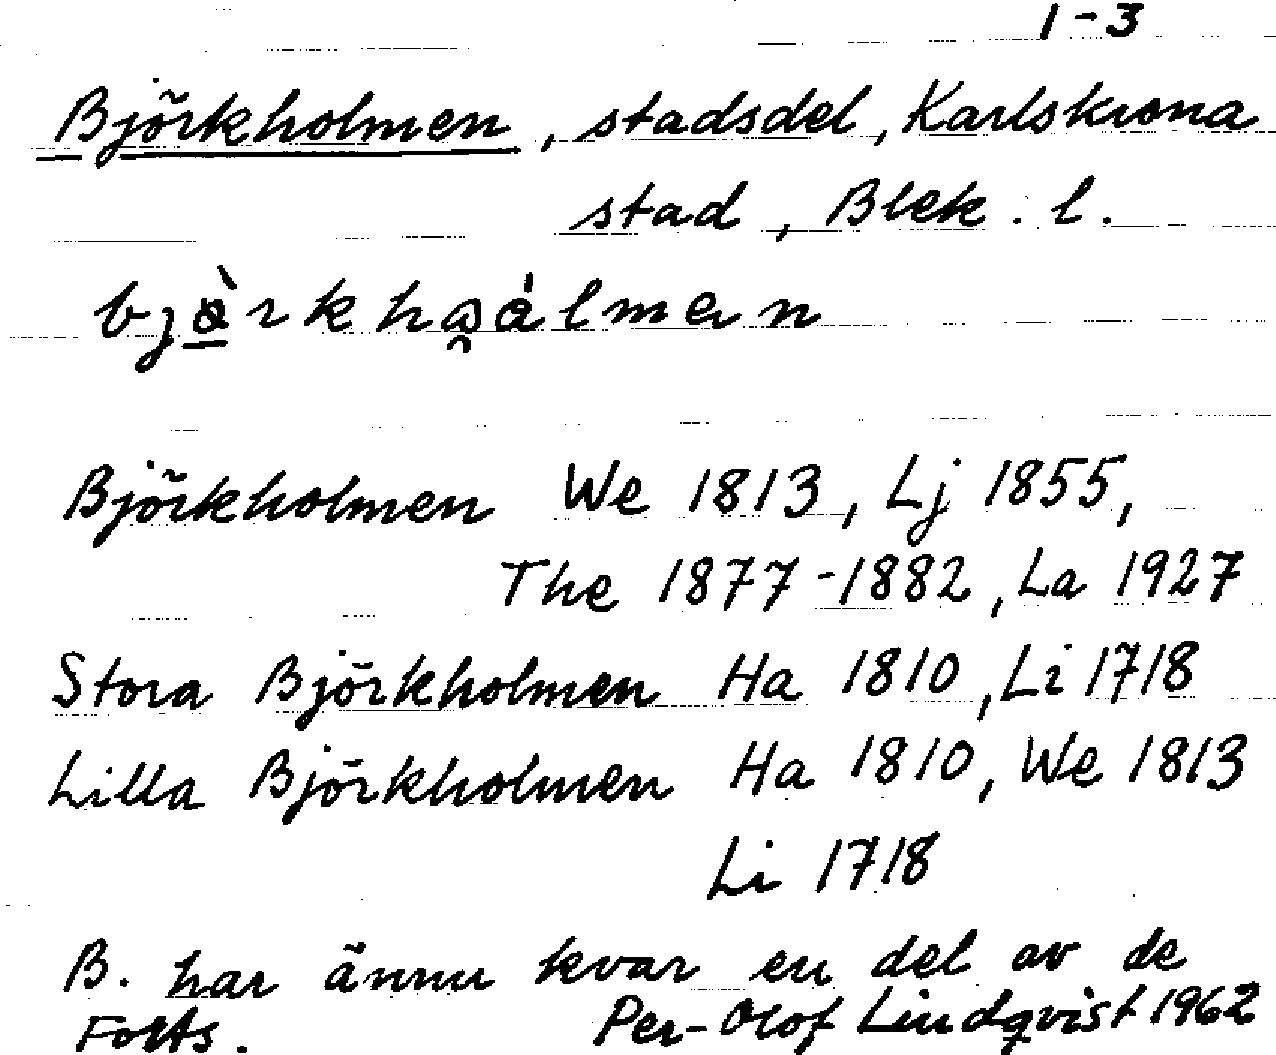 1-3
Björkholmen, stadsdel, Karlskrona
stad, Blek. l.
Björkholmen We 1813, Lj 1855,
The 1877-1882, La 1927
Stora Björkholmen Ha 1810, Li 1718
Lilla Björkholmen Ha 1810, We 1813
Li 1718
B. har ännu kvar en del av de
Forts. Per-Olof Lindqvist 1962